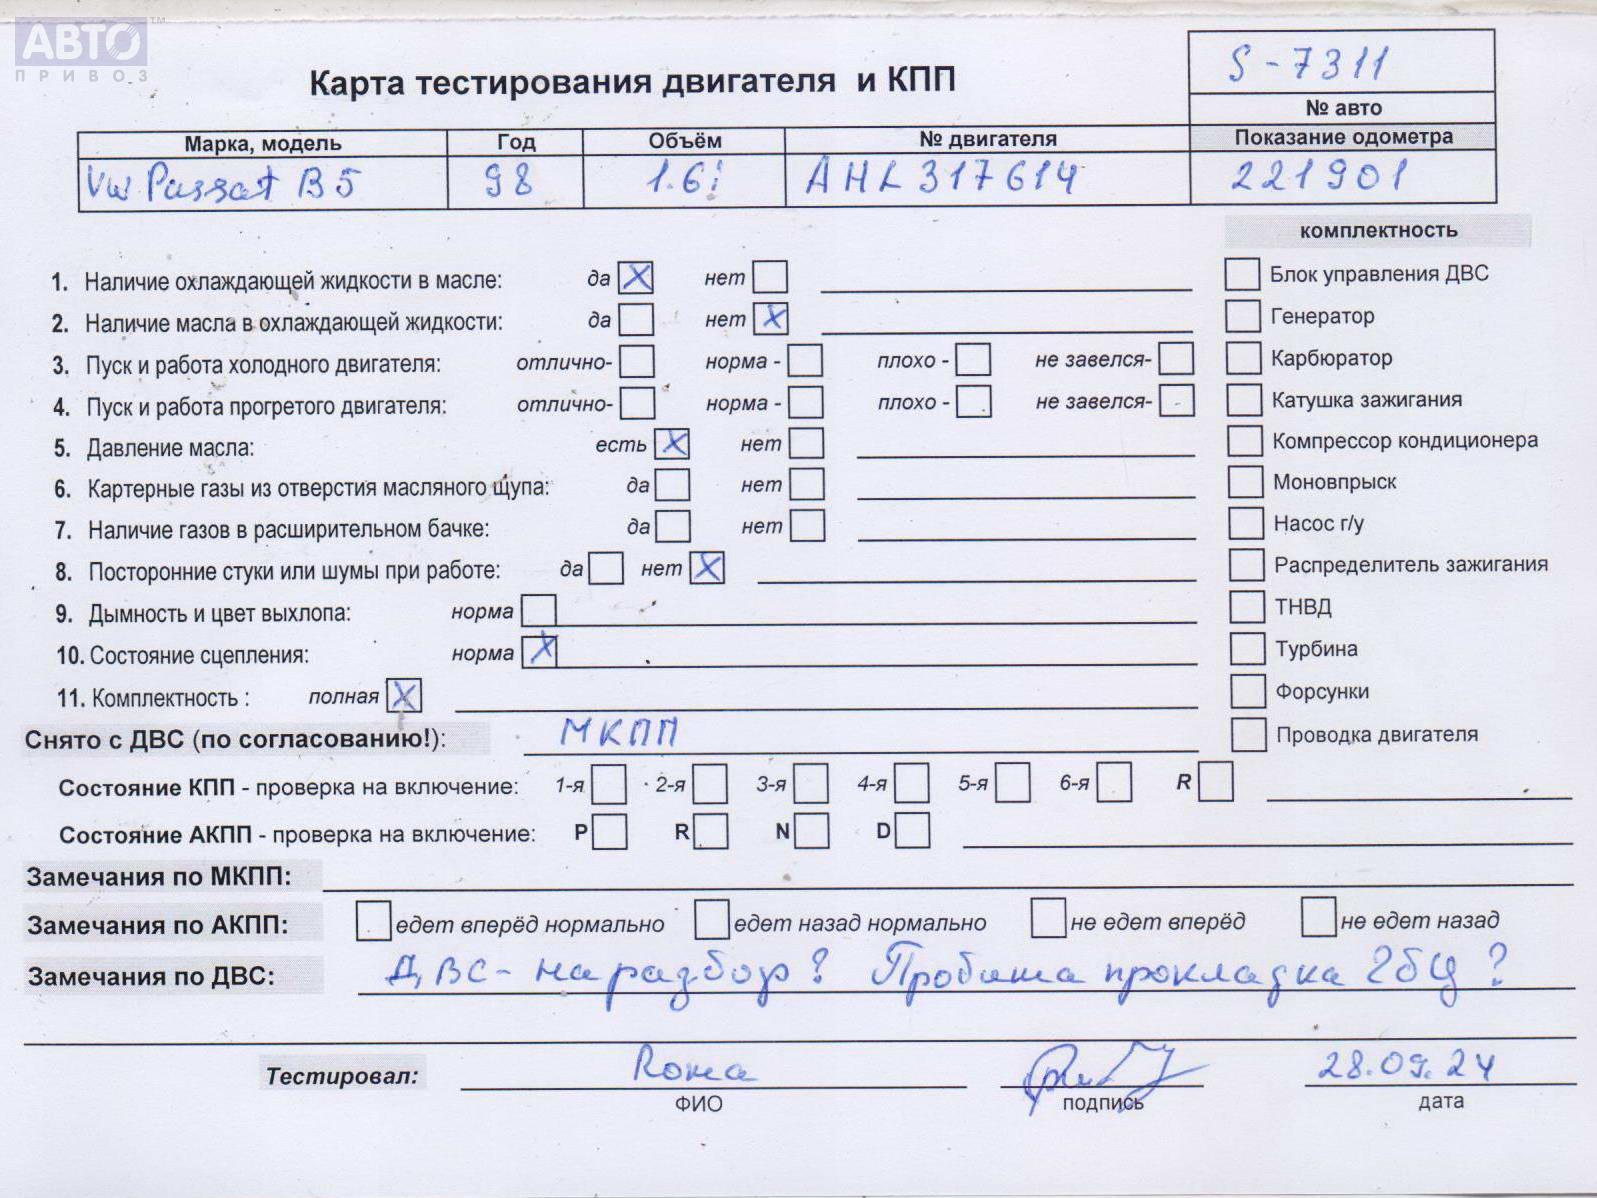 АВТО™
ПРИВОЗ
S-7311
Карта тестирования двигателя и КПП
№ авто
Марка, модель Год Объём № двигателя Показание одометра
VW Passat B5 98 1.6i AHL317614 221901
комплектность
1. Наличие охлаждающей жидкости в масле: да X нет
Блок управления ДВС
2. Наличие масла в охлаждающей жидкости: да нет X
Генератор
3. Пуск и работа холодного двигателя: отлично- норма - плохо - не завелся-
Карбюратор
4. Пуск и работа прогретого двигателя: отлично- норма - плохо - не завелся- -
Катушка зажигания
5. Давление масла: есть X нет
Компрессор кондиционера
6. Картерные газы из отверстия масляного щупа: да нет
Моновпрыск
7. Наличие газов в расширительном бачке: да нет
Насос г/у
8. Посторонние стуки или шумы при работе: да нет X
Распределитель зажигания
9. Дымность и цвет выхлопа: норма
ТНВД
10. Состояние сцепления: норма X
Турбина
11. Комплектность : полная X
Форсунки
Снято с ДВС (по согласованию!): МКПП
Проводка двигателя
Состояние КПП - проверка на включение: 1-я 2-я 3-я 4-я 5-я 6-я R
Состояние АКПП - проверка на включение: P R N D
Замечания по МКПП:
Замечания по АКПП: едет вперёд нормально едет назад нормально не едет вперёд не едет назад
Замечания по ДВС: ДВС - на разбор? Пробита прокладка ГБЦ?
Тестировал: Рома 28.09.24
ФИО подпись дата